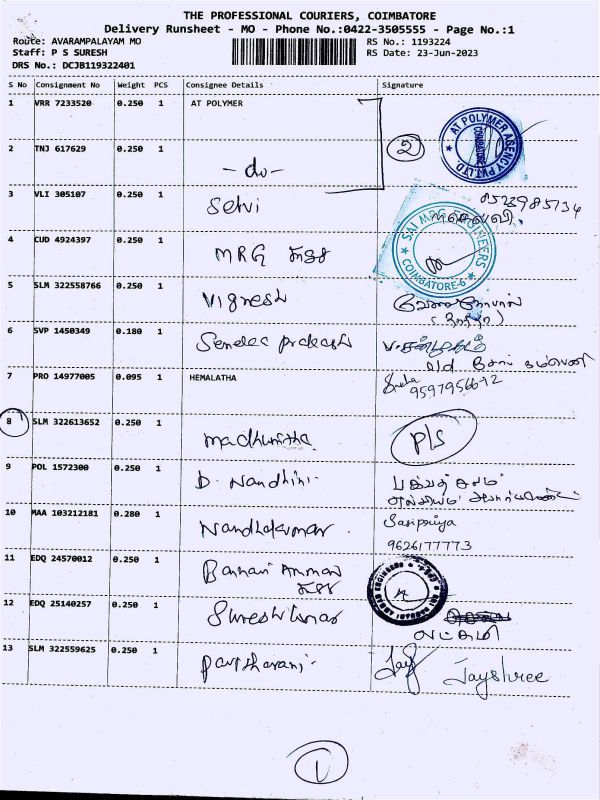 THE PROFESSIONAL COURIERS, COIMBATORE
Delivery Runsheet - MO - Phone No.:0422-3505555 - Page No.:1
Route: AVARAMPALAYAM MO
RS No.: 1193224
Staff: P S SURESH
RS Date: 23-Jun-2023
DRS No.: DCJB119322401
S No Consignment No Weight PCS Consignee Details Signature
1 VRR 7233520 0.250 1 AT POLYMER
AT POLYMER AGENCY PVT.LTD. COIMBATORE
2 TNJ 617629 0.250 1 - do - 2
3 VLI 305107 0.250 1 Selvi
4 CUD 4924397 0.250 1 MRG
SAI MRG ENGINEERS COIMBATORE-6
5 SLM 322558766 0.250 1 Vignesh
6 SVP 1450349 0.180 1 Prakash
7 PRO 14977005 0.095 1 HEMALATHA
8 SLM 322613652 0.250 1 Madhumitha P/S
9 POL 1572300 0.250 1 D. Nandhini.
10 MAA 103212181 0.280 1 Nandhakumar Saripriya
9626177773
11 EDQ 24570012 0.250 1 Bannari Amman
12 EDQ 25140257 0.250 1 Sureshkumar
13 SLM 322559625 0.250 1 Jayshree
1